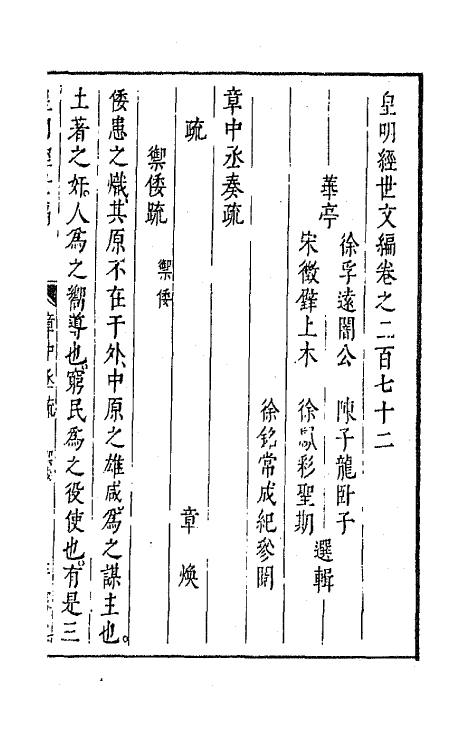 皇明經世文編卷之二百七十二
華亭
徐孚遠闇公　陳子龍卧子
宋徵璧上木　徐鳳彩聖期
選輯
徐銘常成紀參閱
章中丞奏疏
疏　章　煥
禦倭疏　禦倭
倭患之熾其原不在于外中原之雄咸為之謀主也。
土著之奸人為之嚮導也窮民為之役使也有是三
章中丞疏